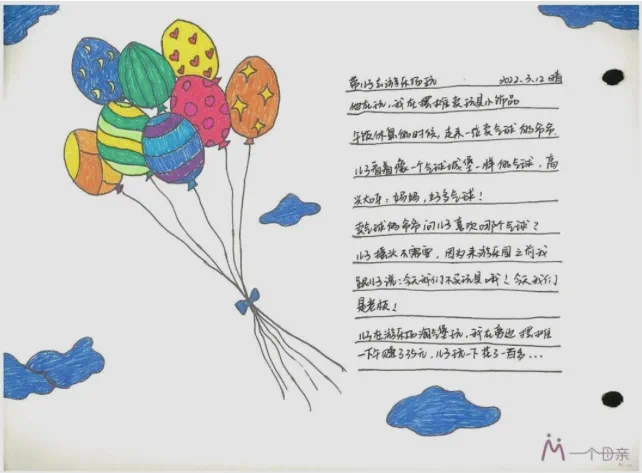 带儿子去游乐场玩 2022.3.12 晴
他在玩,我在摆摊卖玩具小饰品
午饭休息的时候,走来一位卖气球的爷爷
儿子看着像一个气球城堡一样的气球,高
兴大喊:妈妈,好多气球!
卖气球的爷爷问儿子喜欢哪个气球?
儿子摇头不需要,因为来游乐园之前我
跟儿子说:今天我们不买玩具哦!今天我们
是老板!
儿子在游乐场淘气堡玩,我在旁边摆摊
一下午赚了35元,儿子玩一下花了一百多...
一个母亲